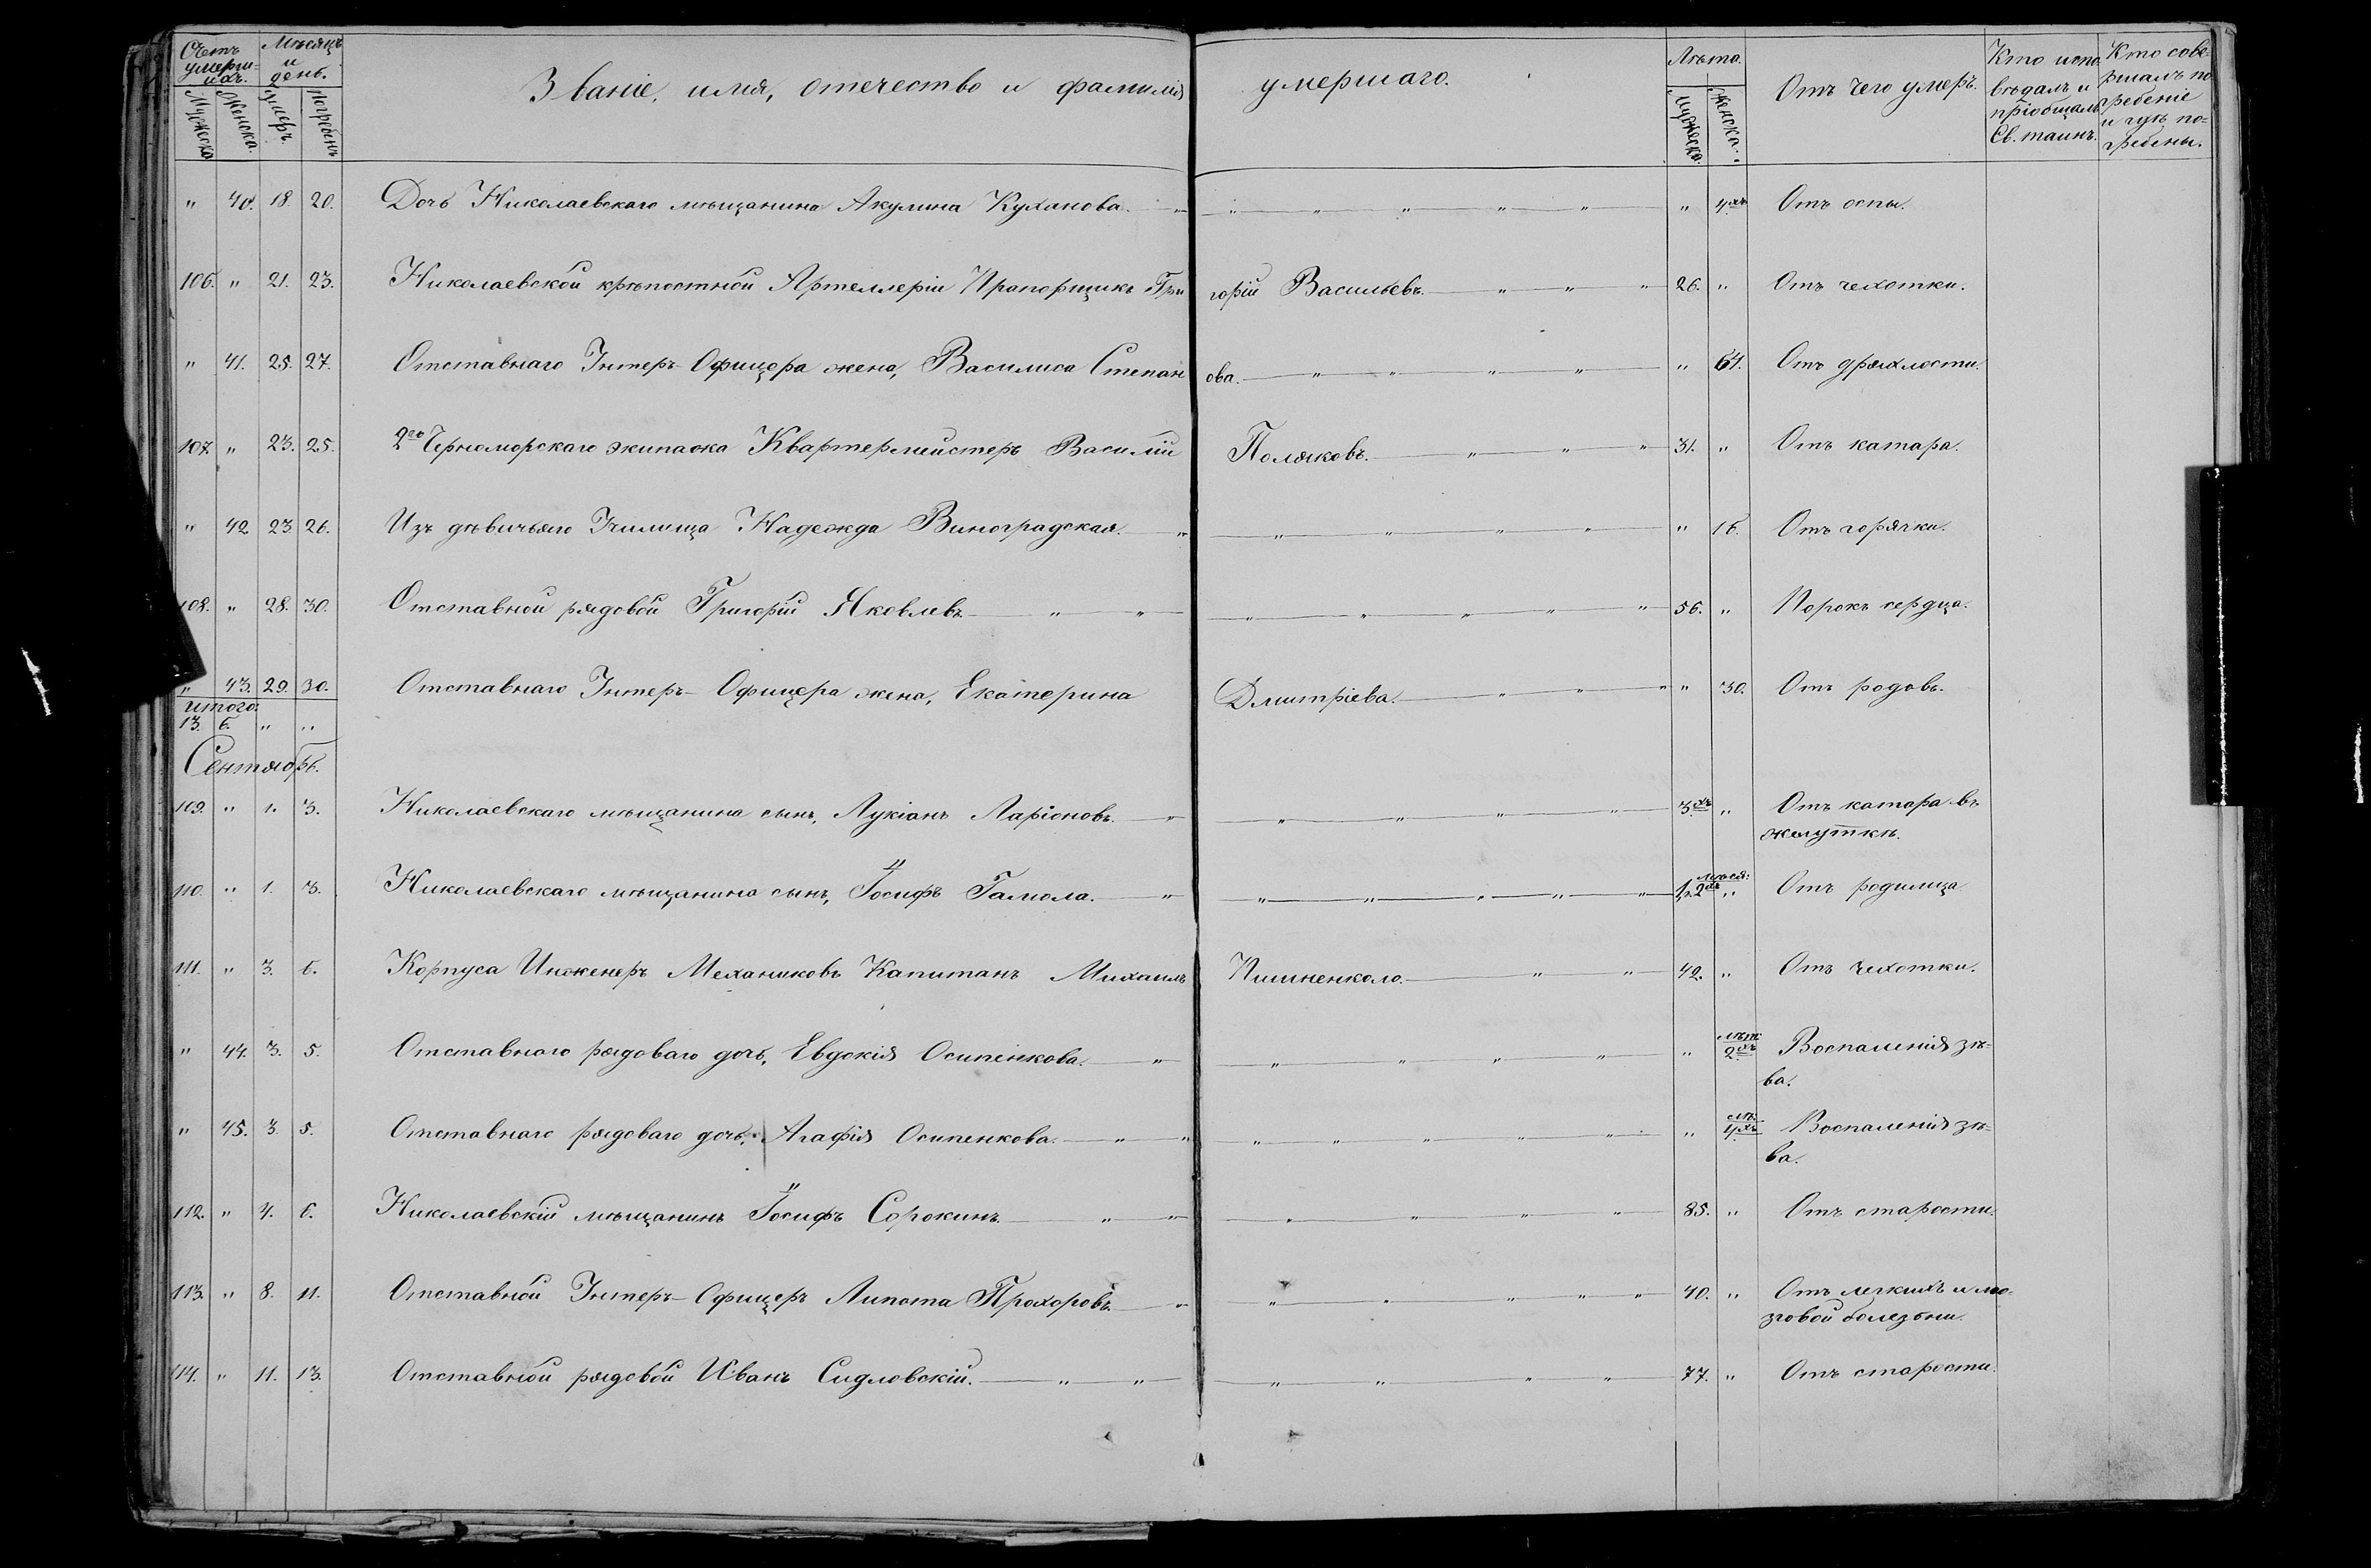 Счетъ умерш-ихъ. Мѣсяцъ и день. Званіе, имя, отечество и фамилія умершаго. Лѣта. Отъ чего умеръ. Кто испо-вѣдалъ и пріобщалъ Св. таинъ. Кто сове-ршалъ по-гребеніе и гдѣ по-гребены.
Мужеска Женска. умеръ. погребенъ Мужеска. женска.
" 40. 18. 20. Дочь Николаевскаго мѣщанина Акулина Куханова. " 4хъ Отъ оспы.
106. " 21. 23. Николаевской крѣпостной Артеллеріи Прапорщикъ Григорій Васильевъ. 26. " Отъ чехотки.
" 41. 25. 27. Отставнаго Унтеръ-Офицера жена, Василиса Степанова. " 64. Отъ дряхлости.
107. " 23. 25. 2го Черноморскаго экипажа Квартермейстеръ Василій Поляковъ. 31. " Отъ катара.
" 42 23. 26. Изъ дѣвичьяго Училища Надежда Виноградская. " 16. Отъ горячки.
108. " 28. 30. Отставной рядовой Григорій Яковлевъ. 56. " Порокъ сердца.
" 43. 29. 30. Отставнаго Унтеръ-Офицера жена, Екатерина Дмитріева. " 30. Отъ родовъ.
итого:
13. 6. " "
Сентябрь.
109. " 1. 3. Николаевскаго мѣщанина сынъ, Лукіанъ Ларіоновъ. 3хъ " Отъ катара въ
желуткѣ.
110. " 1. 3. Николаевскаго мѣщанина сынъ, Іосифъ Гамола. мѣся: " Отъ родимца
111. " 3. 6. Корпуса Инженеръ Механиковъ Капитанъ Михаилъ 42. " Отъ чехотки.
" 44. 3. 5. Отставнаго рядоваго дочь, Евдокія Осипенкова. " лѣт: 2хъ Воспаленія зѣ-
ва.
" 45. 3. 5. Отставнаго рядоваго дочь, Агафія Осипенкова. " лѣ: 4хъ Воспаленія зѣ-
ва.
112. " 4. 6. Николаевскій мѣщанинъ Іосифъ Сорокинъ. 85. " Отъ старости.
113. " 8. 11. Отставной Унтеръ-Офицеръ Липата Прохоровъ. 40. " Отъ легкихъ и мо-
зговой болезни.
114. " 11. 13. Отставной рядовой Иванъ Сидловскій. 77. " Отъ старости.